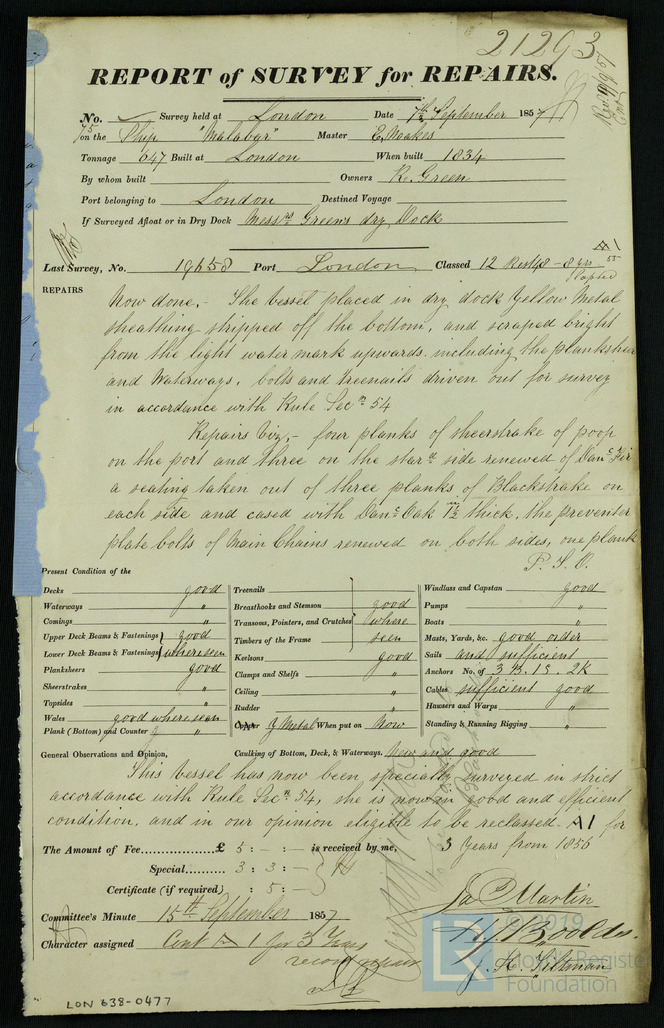 21293
REPORT of SURVEY for REPAIRS.
No. Survey held at London Date 7th September 1857
on the Ship "Malabar" Master E. Noakes
Tonnage 647 Built at London When built 1834
By whom built Owners R. Green
Port belonging to London Destined Voyage
If Surveyed Afloat or in Dry Dock Messrs Greens dry Dock
A1
Last Survey, No. 19658 Port London Classed 12 Rest48 - 8 yrs 55
elapsed
REPAIRS
Now done,- The vessel placed in dry dock Yellow Metal
sheathing stripped off the bottom, and scraped bright
from the light water mark upwards including the planksheer
and Waterways, bolts and treenails driven out for survey
in accordance with Rule Secn 54
Repairs viz,- four planks of sheerstrake of poop
on the port and three on the stard side renewed of Danc Fir
a seating taken out of three planks of Blackstrake on
each side and cased with Danc Oak thick, the preventer
plate bolts of Main Chains renewed on both sides, one plank
P.T.O.
Present Condition of the
Decks good
Waterways "
Comings "
Upper Deck Beams & Fastenings good
Lower Deck Beams & Fastenings where seen
Planksheers good
Sheerstrakes "
Topsides "
Wales good where seen
Plank (Bottom) and Counter "
Treenails
Breasthooks and Stemson good
Transoms, Pointers, and Crutches where
Timbers of the Frame seen
Keelsons good
Clamps and Shelfs "
Ceiling "
Rudder "
Copper Y Metal When put on Now
Windlass and Capstan good
Pumps "
Boats "
Masts, Yards, &c. good order
Sails and sufficient
Anchors No. of 3 B. 1 S. 2 K
Cables sufficient good
Hawsers and Warps "
Standing & Running Rigging "
General Observations and Opinion, Caulking of Bottom, Deck, & Waterways. New and good
This vessel has now been specially surveyed in strict
accordance with Rule Secn 54, she is now in good and efficient
condition, and in our opinion eligible to be reclassed A1 for
The Amount of Fee £ 5 : - : - is received by me, 3 Years from 1855
Special 3 : 3 : -
Certificate (if required) : 5 : -
Jas Martin
Committee's Minute 15th September 1857
Character assigned Cont A 1 for 3 Years
J. H. Filtman
© 2019
Lloyd's Register
Foundation
LR
LON 638-0477